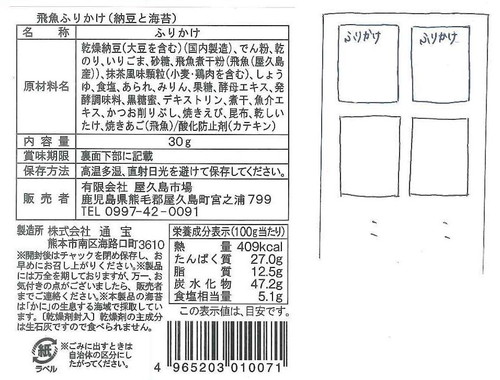 飛魚ふりかけ(納豆と海苔)
名 称 ふりかけ
原材料名 乾燥納豆(大豆を含む)(国内製造)、でん粉、乾
のり、いりごま、砂糖、飛魚煮干粉(飛魚(屋久島
産))、抹茶風味顆粒(小麦・鶏肉を含む)、しょう
ゆ、食塩、あられ、みりん、果糖、酵母エキス、発
酵調味料、黒糖蜜、デキストリン、煮干、魚介エ
キス、かつお削りぶし、焼きえび、昆布、乾しい
たけ、焼きあご(飛魚)/酸化防止剤(カテキン)
内 容 量 30g
賞味期限 裏面下部に記載
保存方法 高温多湿、直射日光を避けて保存してください。
販 売 者 有限会社 屋久島市場
鹿児島県熊毛郡屋久島町宮之浦799
TEL 0997-42-0091
製造所 株式会社 通 宝
熊本市南区海路口町3610
※開封後はチャックを閉め保存し、お
早めにお召し上がりください。※製品
には万全を期しておりますが、万一、お
気付きの点がございましたら、販売者
までご連絡ください。※本製品の海苔
は「かに」の生息する海域で採取してい
ます。〔乾燥剤封入〕乾燥剤の主成分
は生石灰ですので食べられません。
紙
ラベル
※ごみに出すときは
自治体の区分にし
たがってください。
栄養成分表示(100g当たり)
熱 量 409kcal
たんぱく質 27.0g
脂 質 12.5g
炭 水 化 物 47.2g
食塩相当量 5.1g
この表示値は、目安です。
4 965203 010071
ふりかけ
ふりかけ